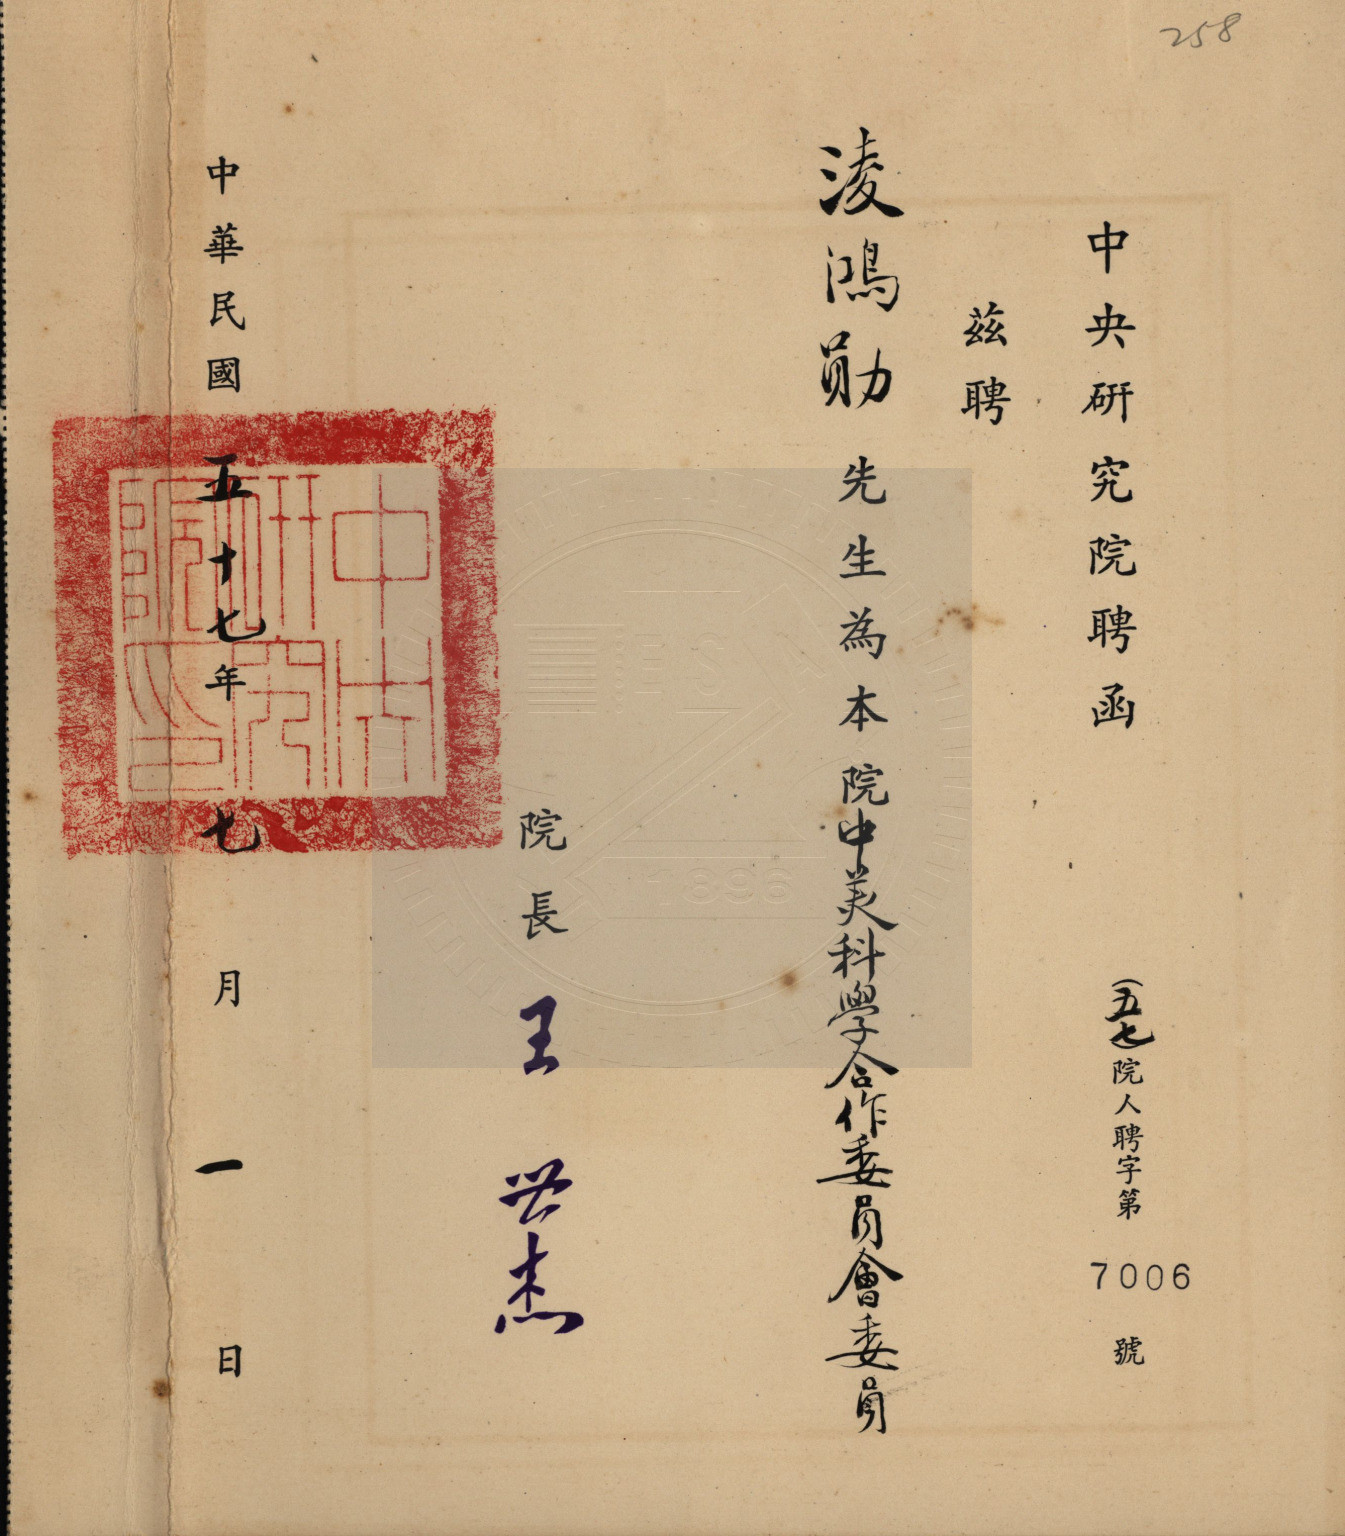 258
中央研究院聘函
(五七)院人聘字第7006號
茲聘
淩鴻勛先生為本院中美科學合作委員會委員
院長 王世杰
中華民國五十七年七月一日
中央研究院之印
1896